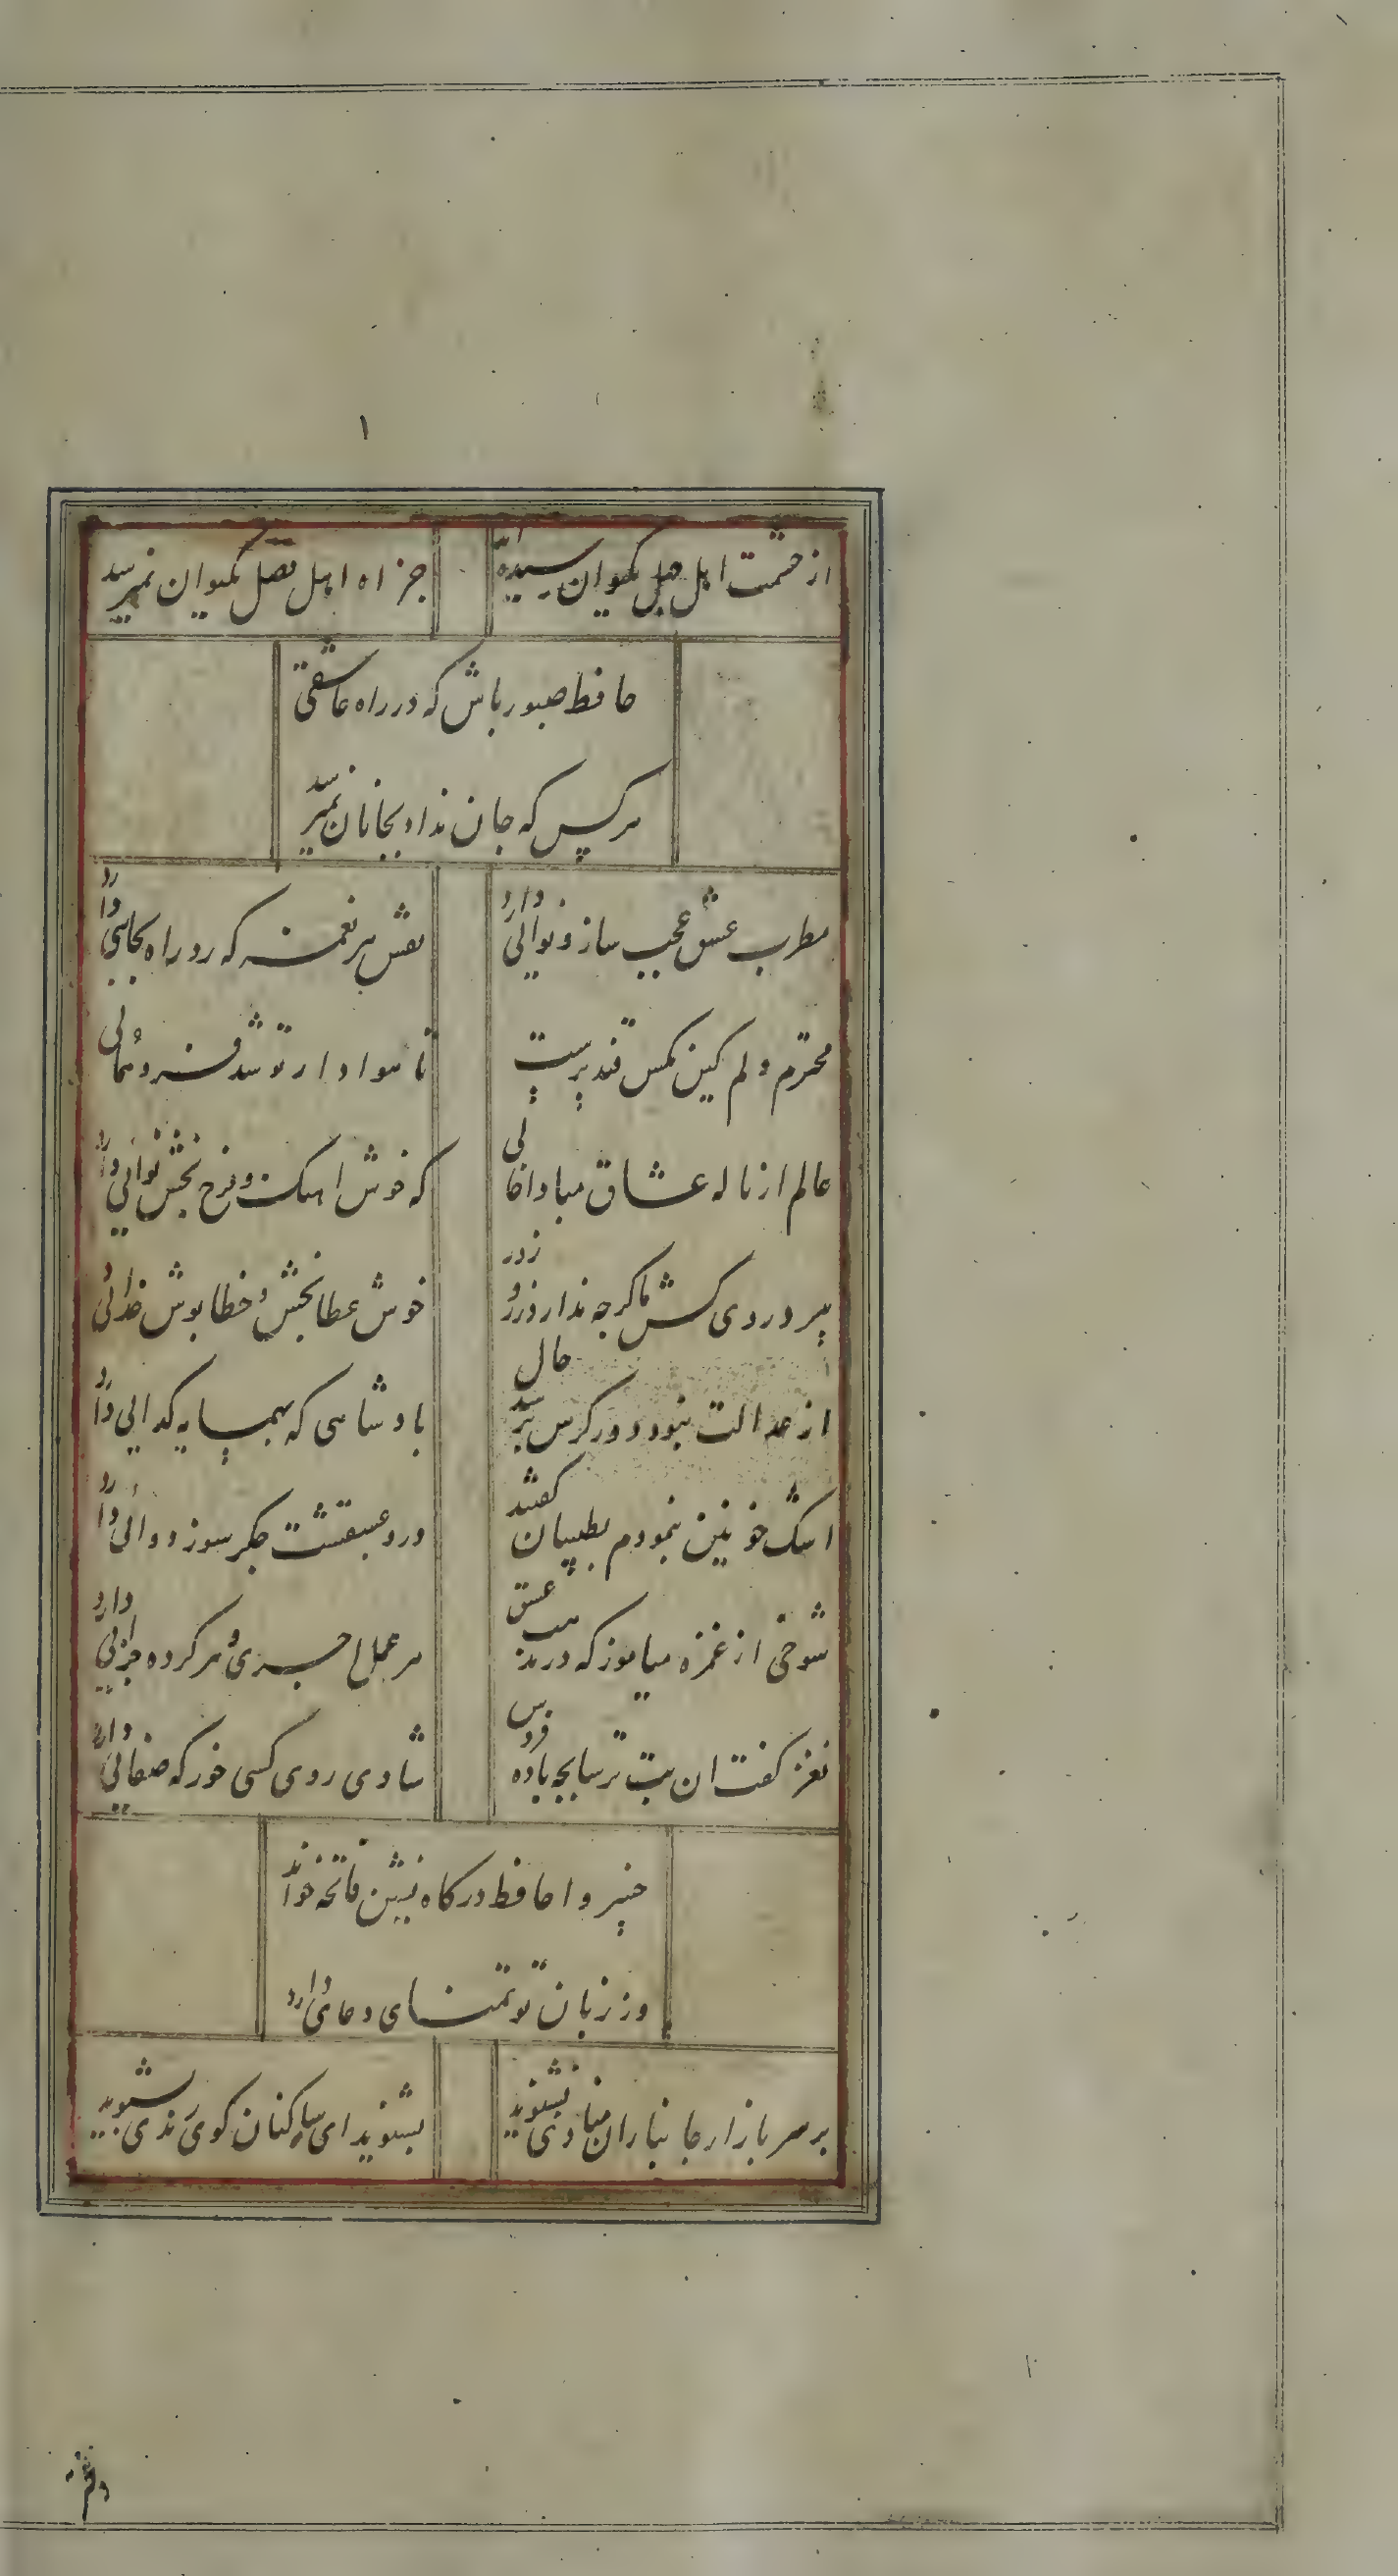 از حشمت اهل جهل بکیوان رسیده‌اند
جز آه اهل فضل بکیوان نمیرسد
حافظ صبور باش که در راه عاشقی
هر کس که جان نداد بجانان نمیرسد
مطرب عشق عجب ساز و نوائی دارد
نقش هر نغمه که زد راه بجائی دارد
محترم دلم کین مکس قندپرست
تا هوادار تو شد فر همائی
عالم از ناله عشاق مبادا خالی
که خوش آهنک و فرح بخش نوائی دارد
پیر دردی کش ما کرچه ندارد زر و زور
خوش عطا بخش و خطا پوش خدائی
از عدالت نبود دور کرش پرسد حال
پادشاهی که بهمسایه کدائی دارد
اشک خونین بنمودم بطبیبان کفتند
درد عشقست جکر سوز دوائی دارد
شوخی از غمزه میاموز که در مذهب عشق
هر عمل اجری و هر کرده جزائی دارد
نغز کفت آن بت ترسابچه باده فروش
شادی روی کسی خور که صفائی دارد
خسروا حافظ درکاه نشین فاتحه خواند
وز زبان تو تمنای دعائی دارد
بر سر بازار جانبازان منادی بشنوید
بشنوید ای ساکنان کوی رندی بشنوید
دختر